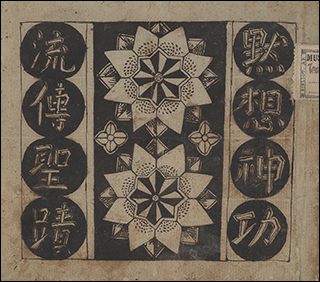 默想神功
流傳聖蹟